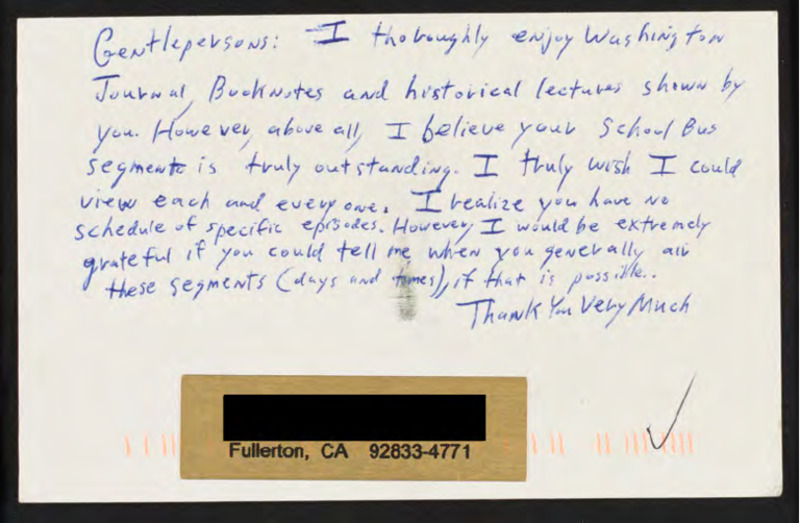 Gentlepersons: I thoroughly enjoy Washington
Journal, Booknotes and historical lectures shown by
you. However, above all, I believe your School Bus
segments is truly outstanding. I truly wish I could
view each and every one. I realize you have no
schedule of specific episodes. However, I would be extremely
grateful if you could tell me when you generally air
these segments (days and times), if that is possible..
Thank You Very Much
Fullerton, CA 92833-4771